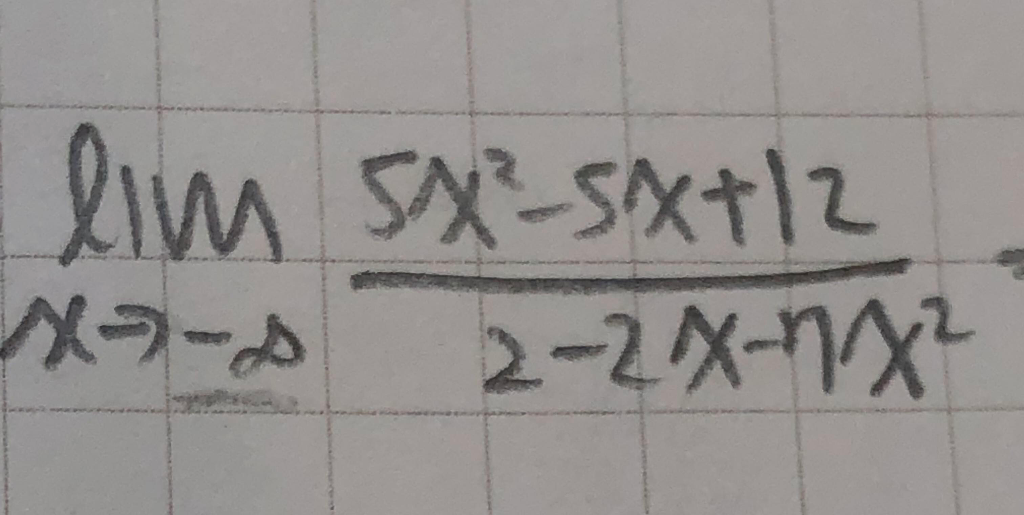 lim 5x²-5x+12
x→-∞ 2-2x-7x²